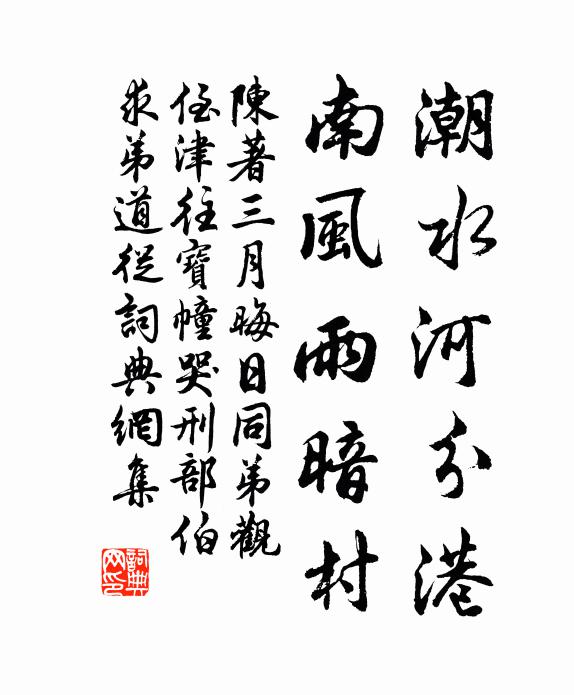 潮水河分港
南風雨暗村
陳著三月晦日同弟觀
侄津往寶幢哭刑部伯
求弟道從詞典網集
詞典網印